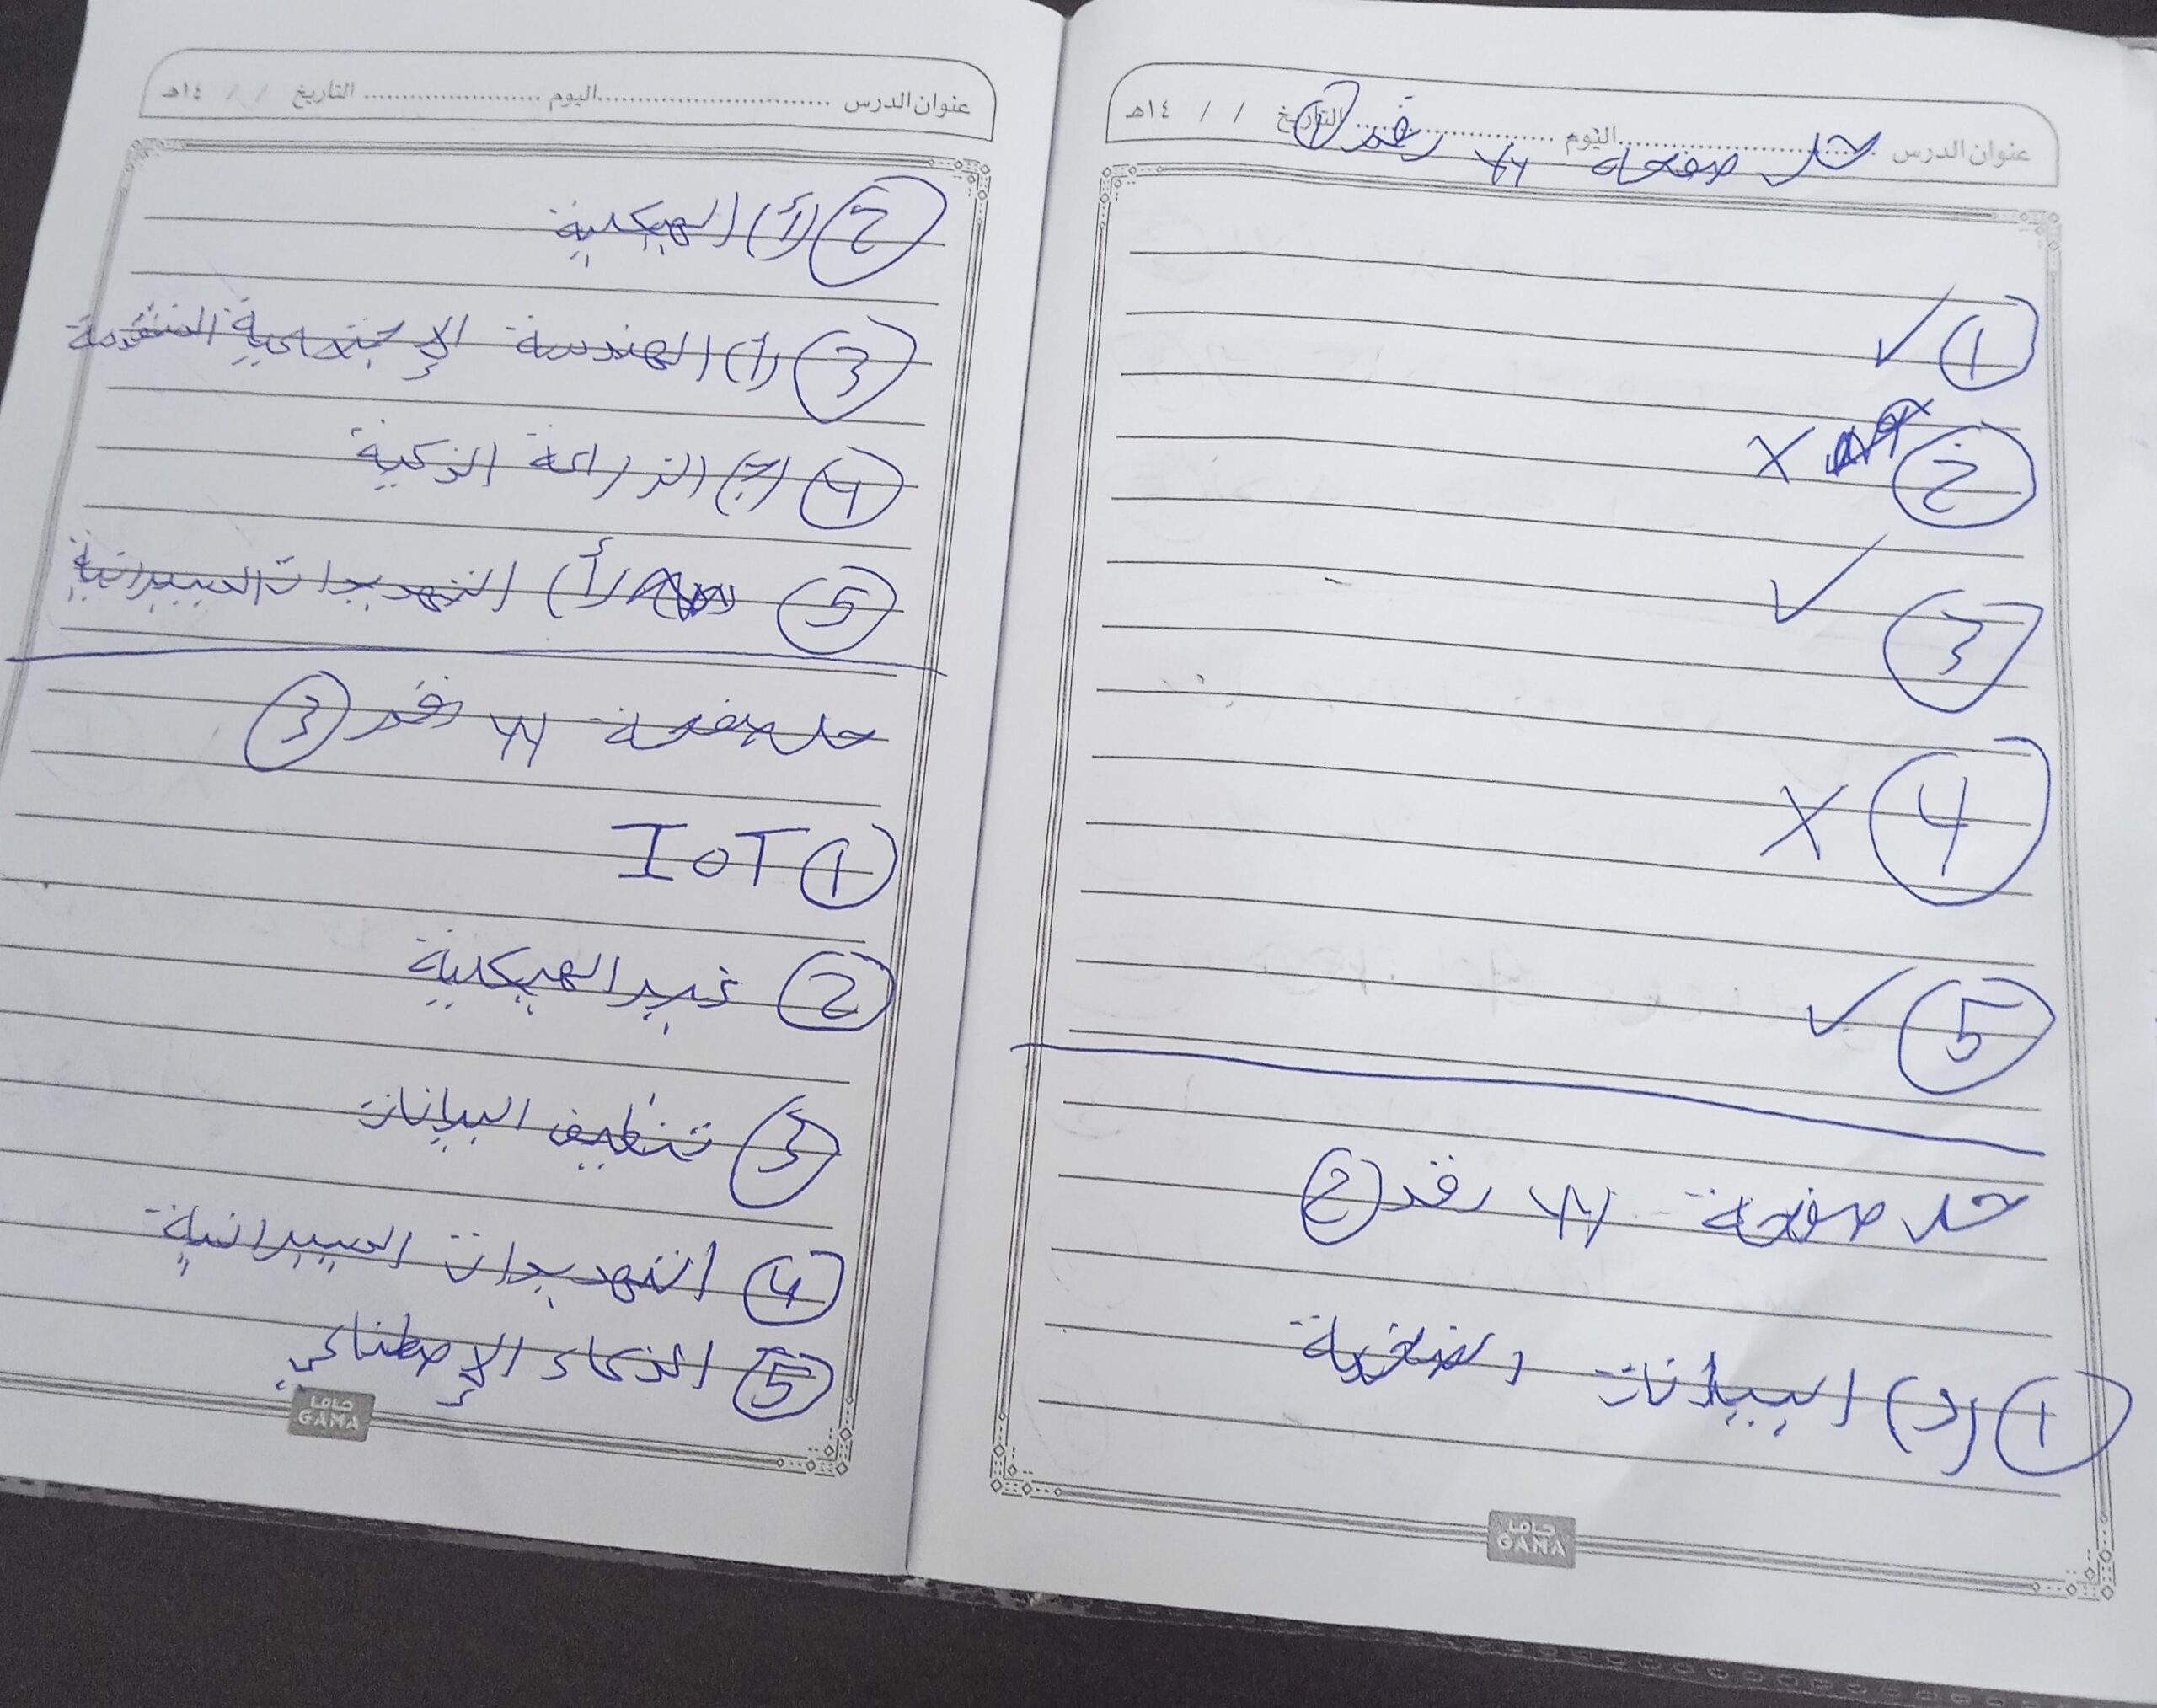 عنوان الدرس حل صفحة ٧٧ رقم ①
اليوم التاريخ / / ١٤هـ
① ✓
② X
③ ✓
④ X
⑤ ✓
حل صفحة ٧٧ رقم ②
① (د) البيانات الضخمة
جاما
GAMA
عنوان الدرس اليوم التاريخ / / ١٤هـ
② (أ) الهيكلية
③ (أ) الهندسة الإجتماعية المتقدمة
④ (ج) الزراعة الذكية
⑤ (أ) التهديدات السيبرانية
حل صفحة ٧٧ رقم ③
① IoT
② غير الهيكلية
③ تنظيف البيانات
④ التهديدات السيبرانية
⑤ الذكاء الإصطناعي
جاما
GAMA